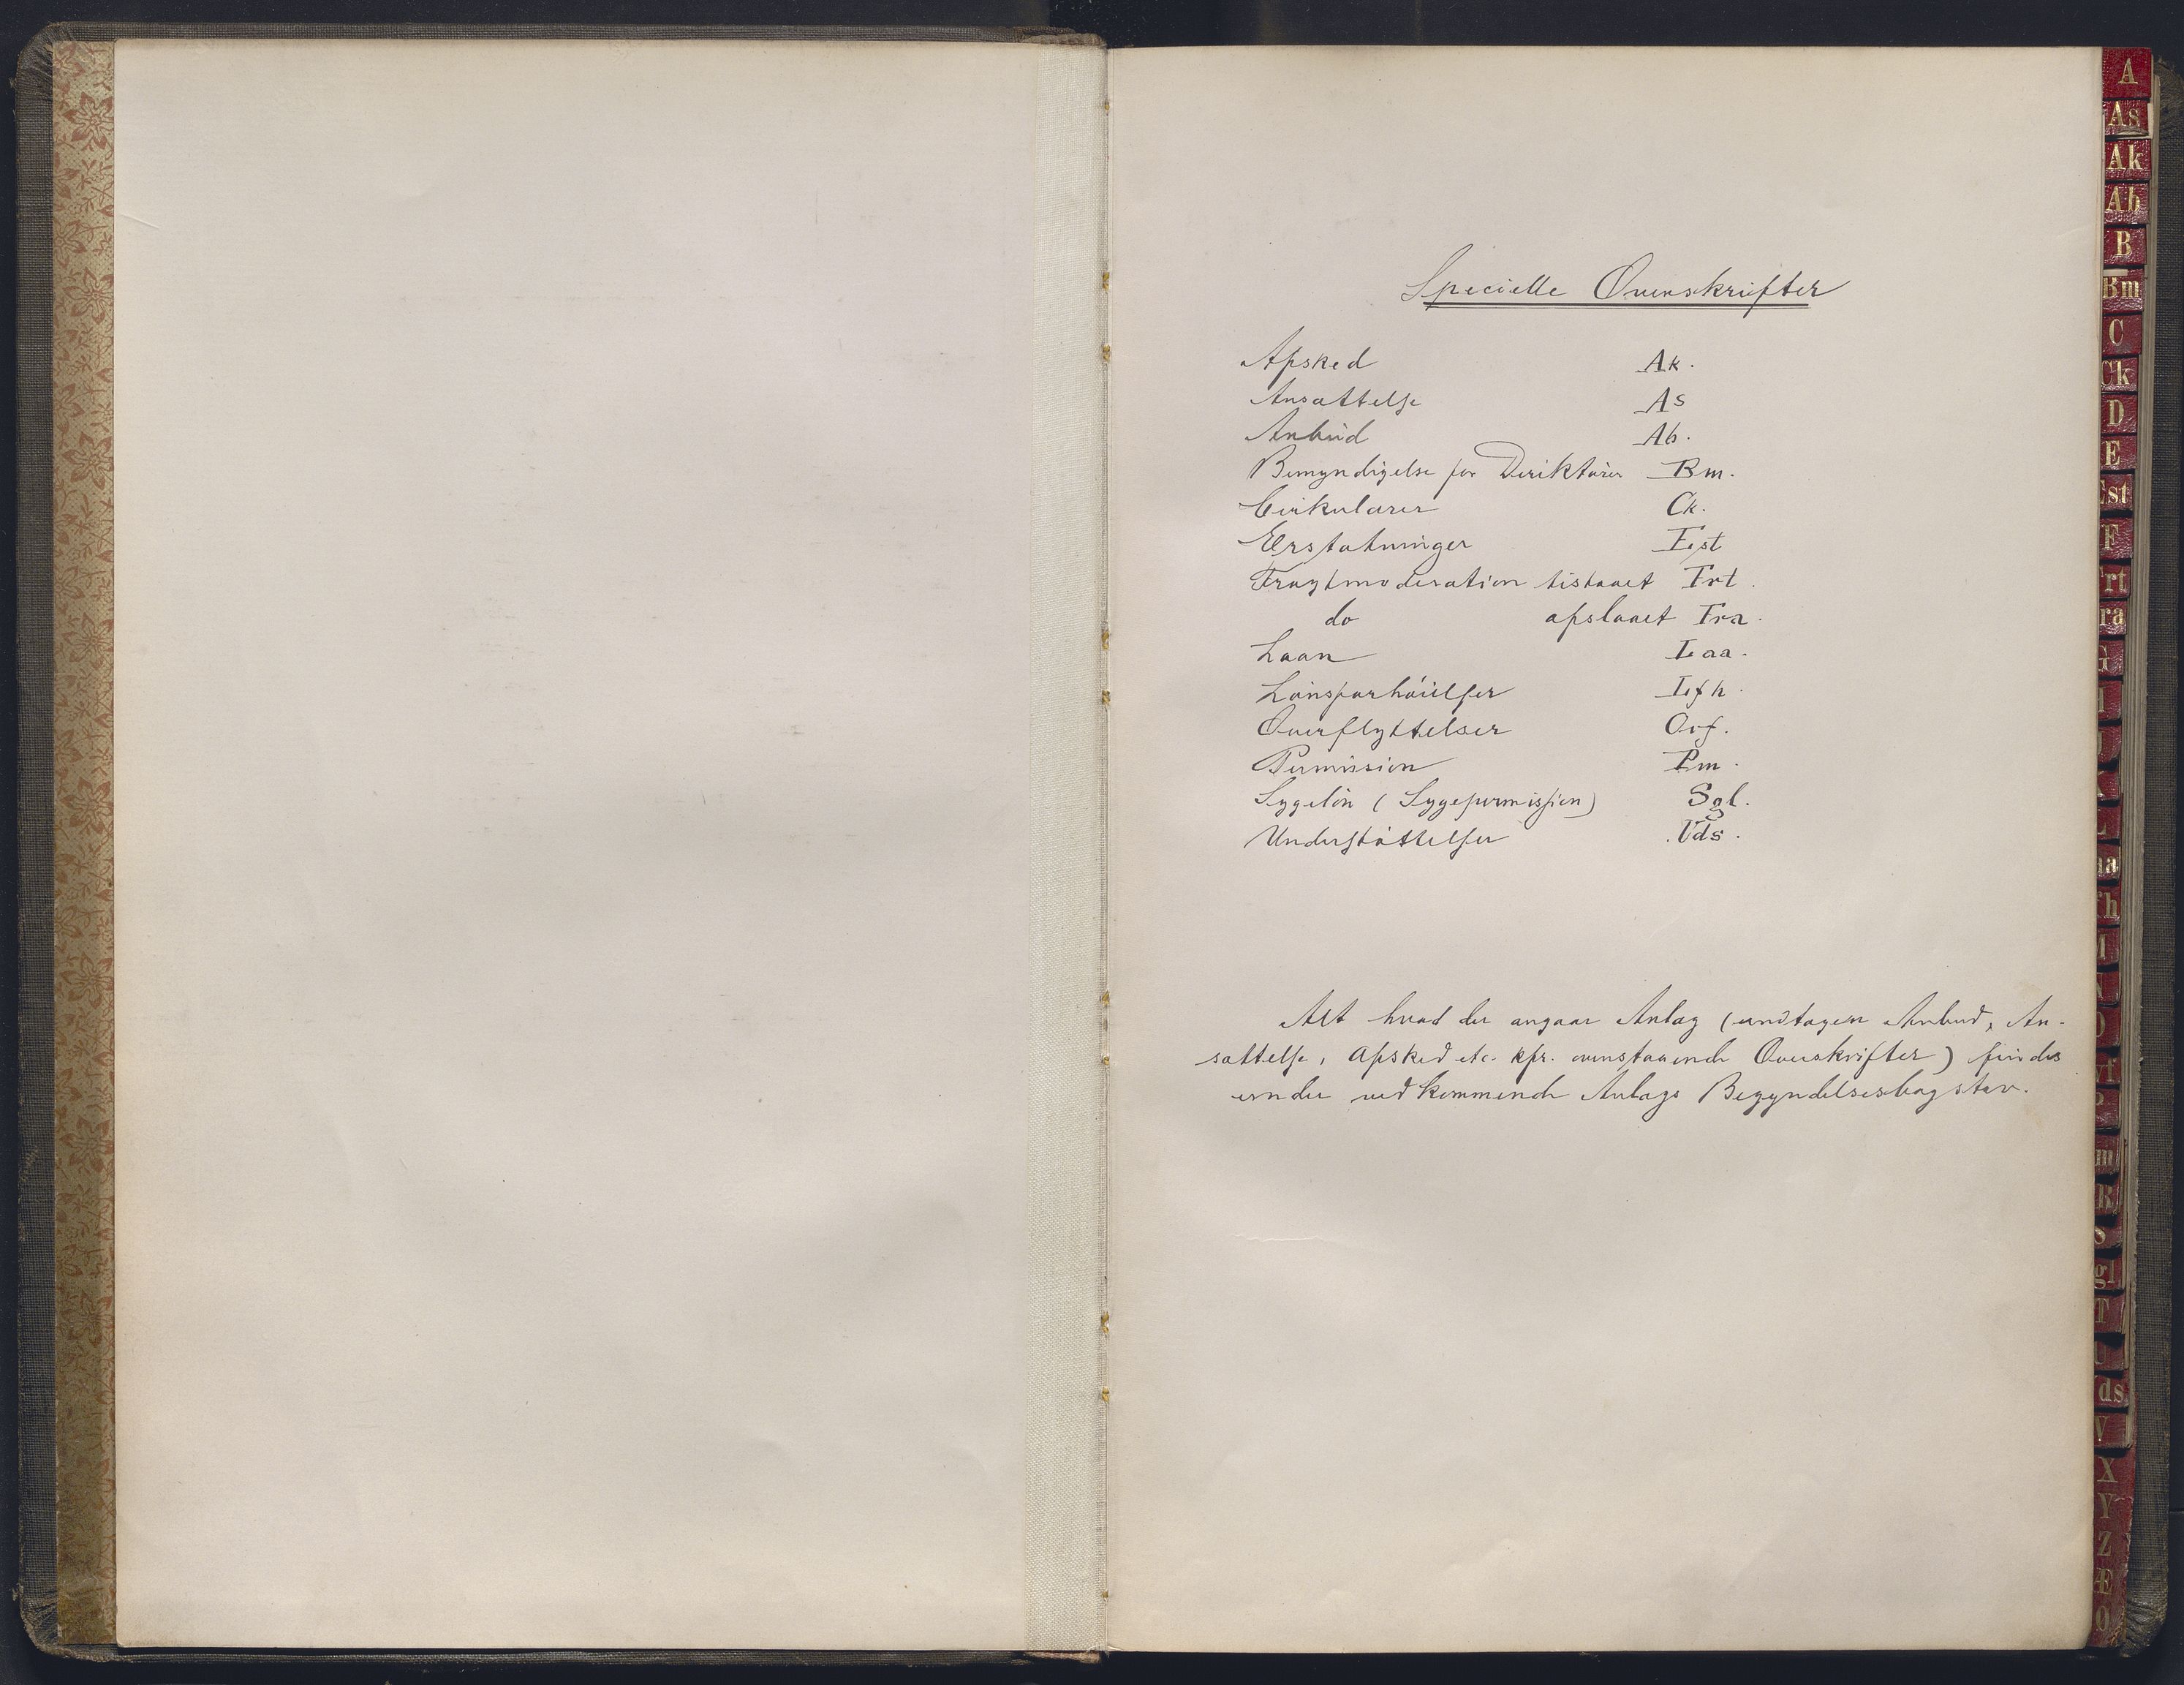 Specielle Overskrifter
Afsked Ak.
Ansættelse As
Anbud Ab.
Bemyndigelse for Direktører Bm.
Cirkulærer Ck.
Erstatninger Est
Fragtmoderation tilstaaet Frt.
do afslaaet Fra.
Laan Laa.
Lønsforhøielser Lfh.
Overflyttelser Ovf.
Permission Pm.
Sygeløn (Sygepermission) Sgl.
Understøttelser Uds.
Alt hvad der angaar Anlæg (undtagen Anbud, An-
sættelse, Afsked etc. kfr. ovenstaaende Overskrifter) findes
under vedkommende Anlægs Begyndelsesbogstav.
A
As
Ak
Ab
B
Bm
C
Ck
D
E
Est
F
Frt
Fra
G
K
L
T
ds
V
X
Y
Z
Æ
Ø